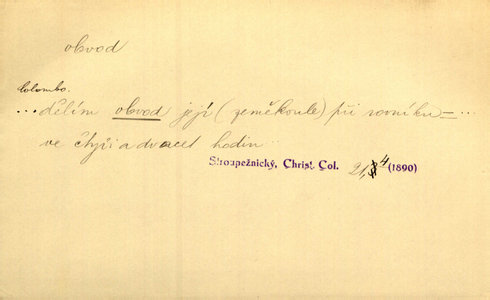 obvod
Colombo.
... dělím obvod její (zeměkoule) při rovníku – ...
ve čtyři a dvacet hodin ...
Stroupežnický, Christ. Col. 21,4 (1890)